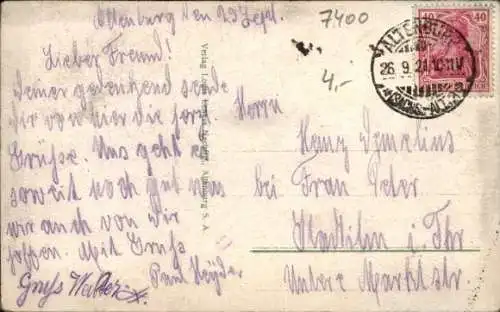 Altenburg den 23 Sept.
Lieber Freund!
Deiner gedenkend sende
dir von hier die
Grüsse. Uns geht es
soweit noch gut was
wir auch von Dir
hoffen. Mit Gruss
Paul
Gruss Walter
Verlag Altenburg S. A.
7400
4,-
40 40
ALTENBURG
26.9.21.10-11V
Herrn
bei Frau Peter
Stadtilm i. Thr
Untere Marktstr.